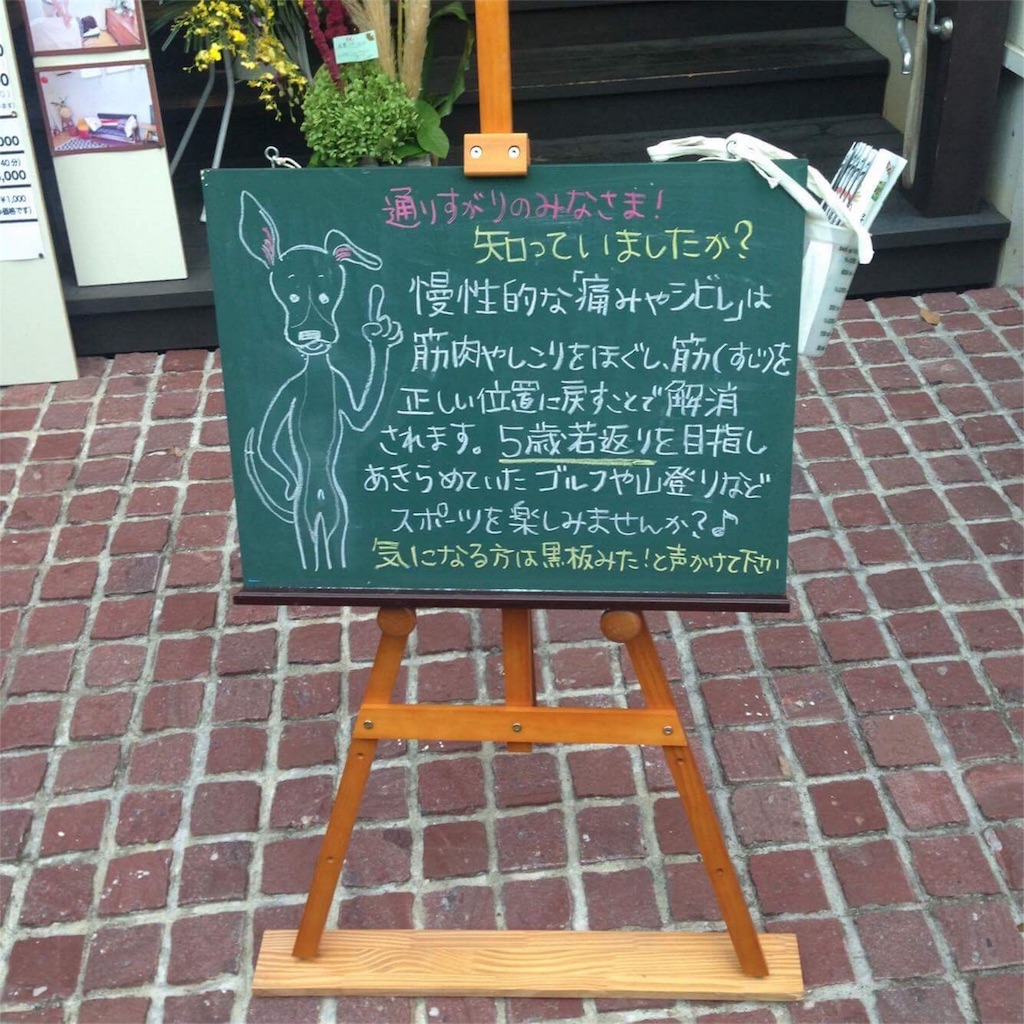 通りすがりのみなさま!
知っていましたか?
慢性的な「痛みやシビレ」は
筋肉やしこりをほぐし、筋(すじ)を
正しい位置に戻すことで解消
されます。5歳若返りを目指し
あきらめていたゴルフや山登りなど
スポーツを楽しみませんか?♪
気になる方は黒板みた!と声かけて下さい
40分)
,000
¥1,000
価格です)